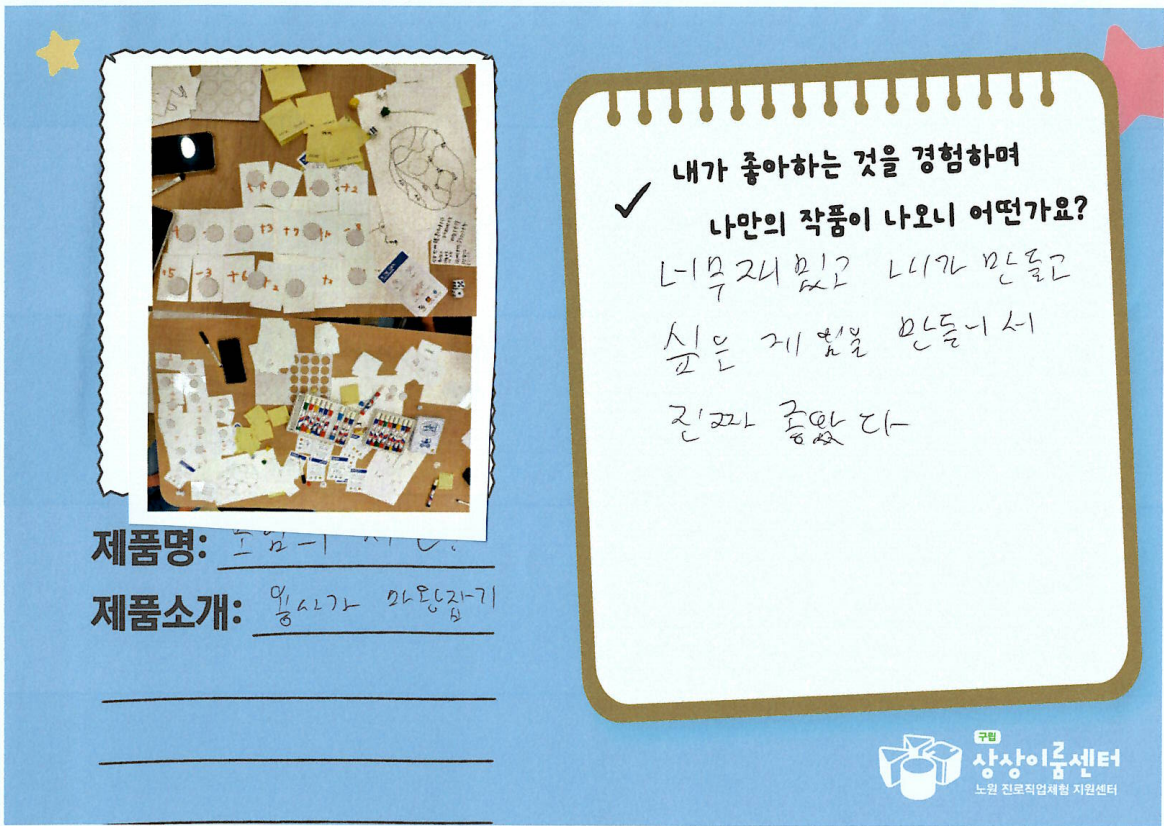 내가 좋아하는 것을 경험하며
나만의 작품이 나오니 어떤가요?
너무 재밌고 내가 만들고
싶은 제품을 만들어서
진짜 좋았다
제품명:
제품소개: 용사가 마왕잡기
+2
+3 +7
+5 -3 +6 +2
구립
상상이룸센터
노원 진로직업체험 지원센터